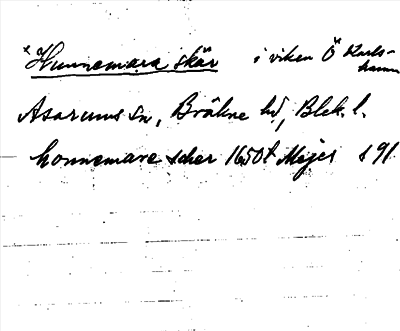 *Hunnemara skär i viken Ö Karls-
hamn
Asarums sn, Bräkne hd, Blek. l.
honnemare scher 1650t Mejer s 91